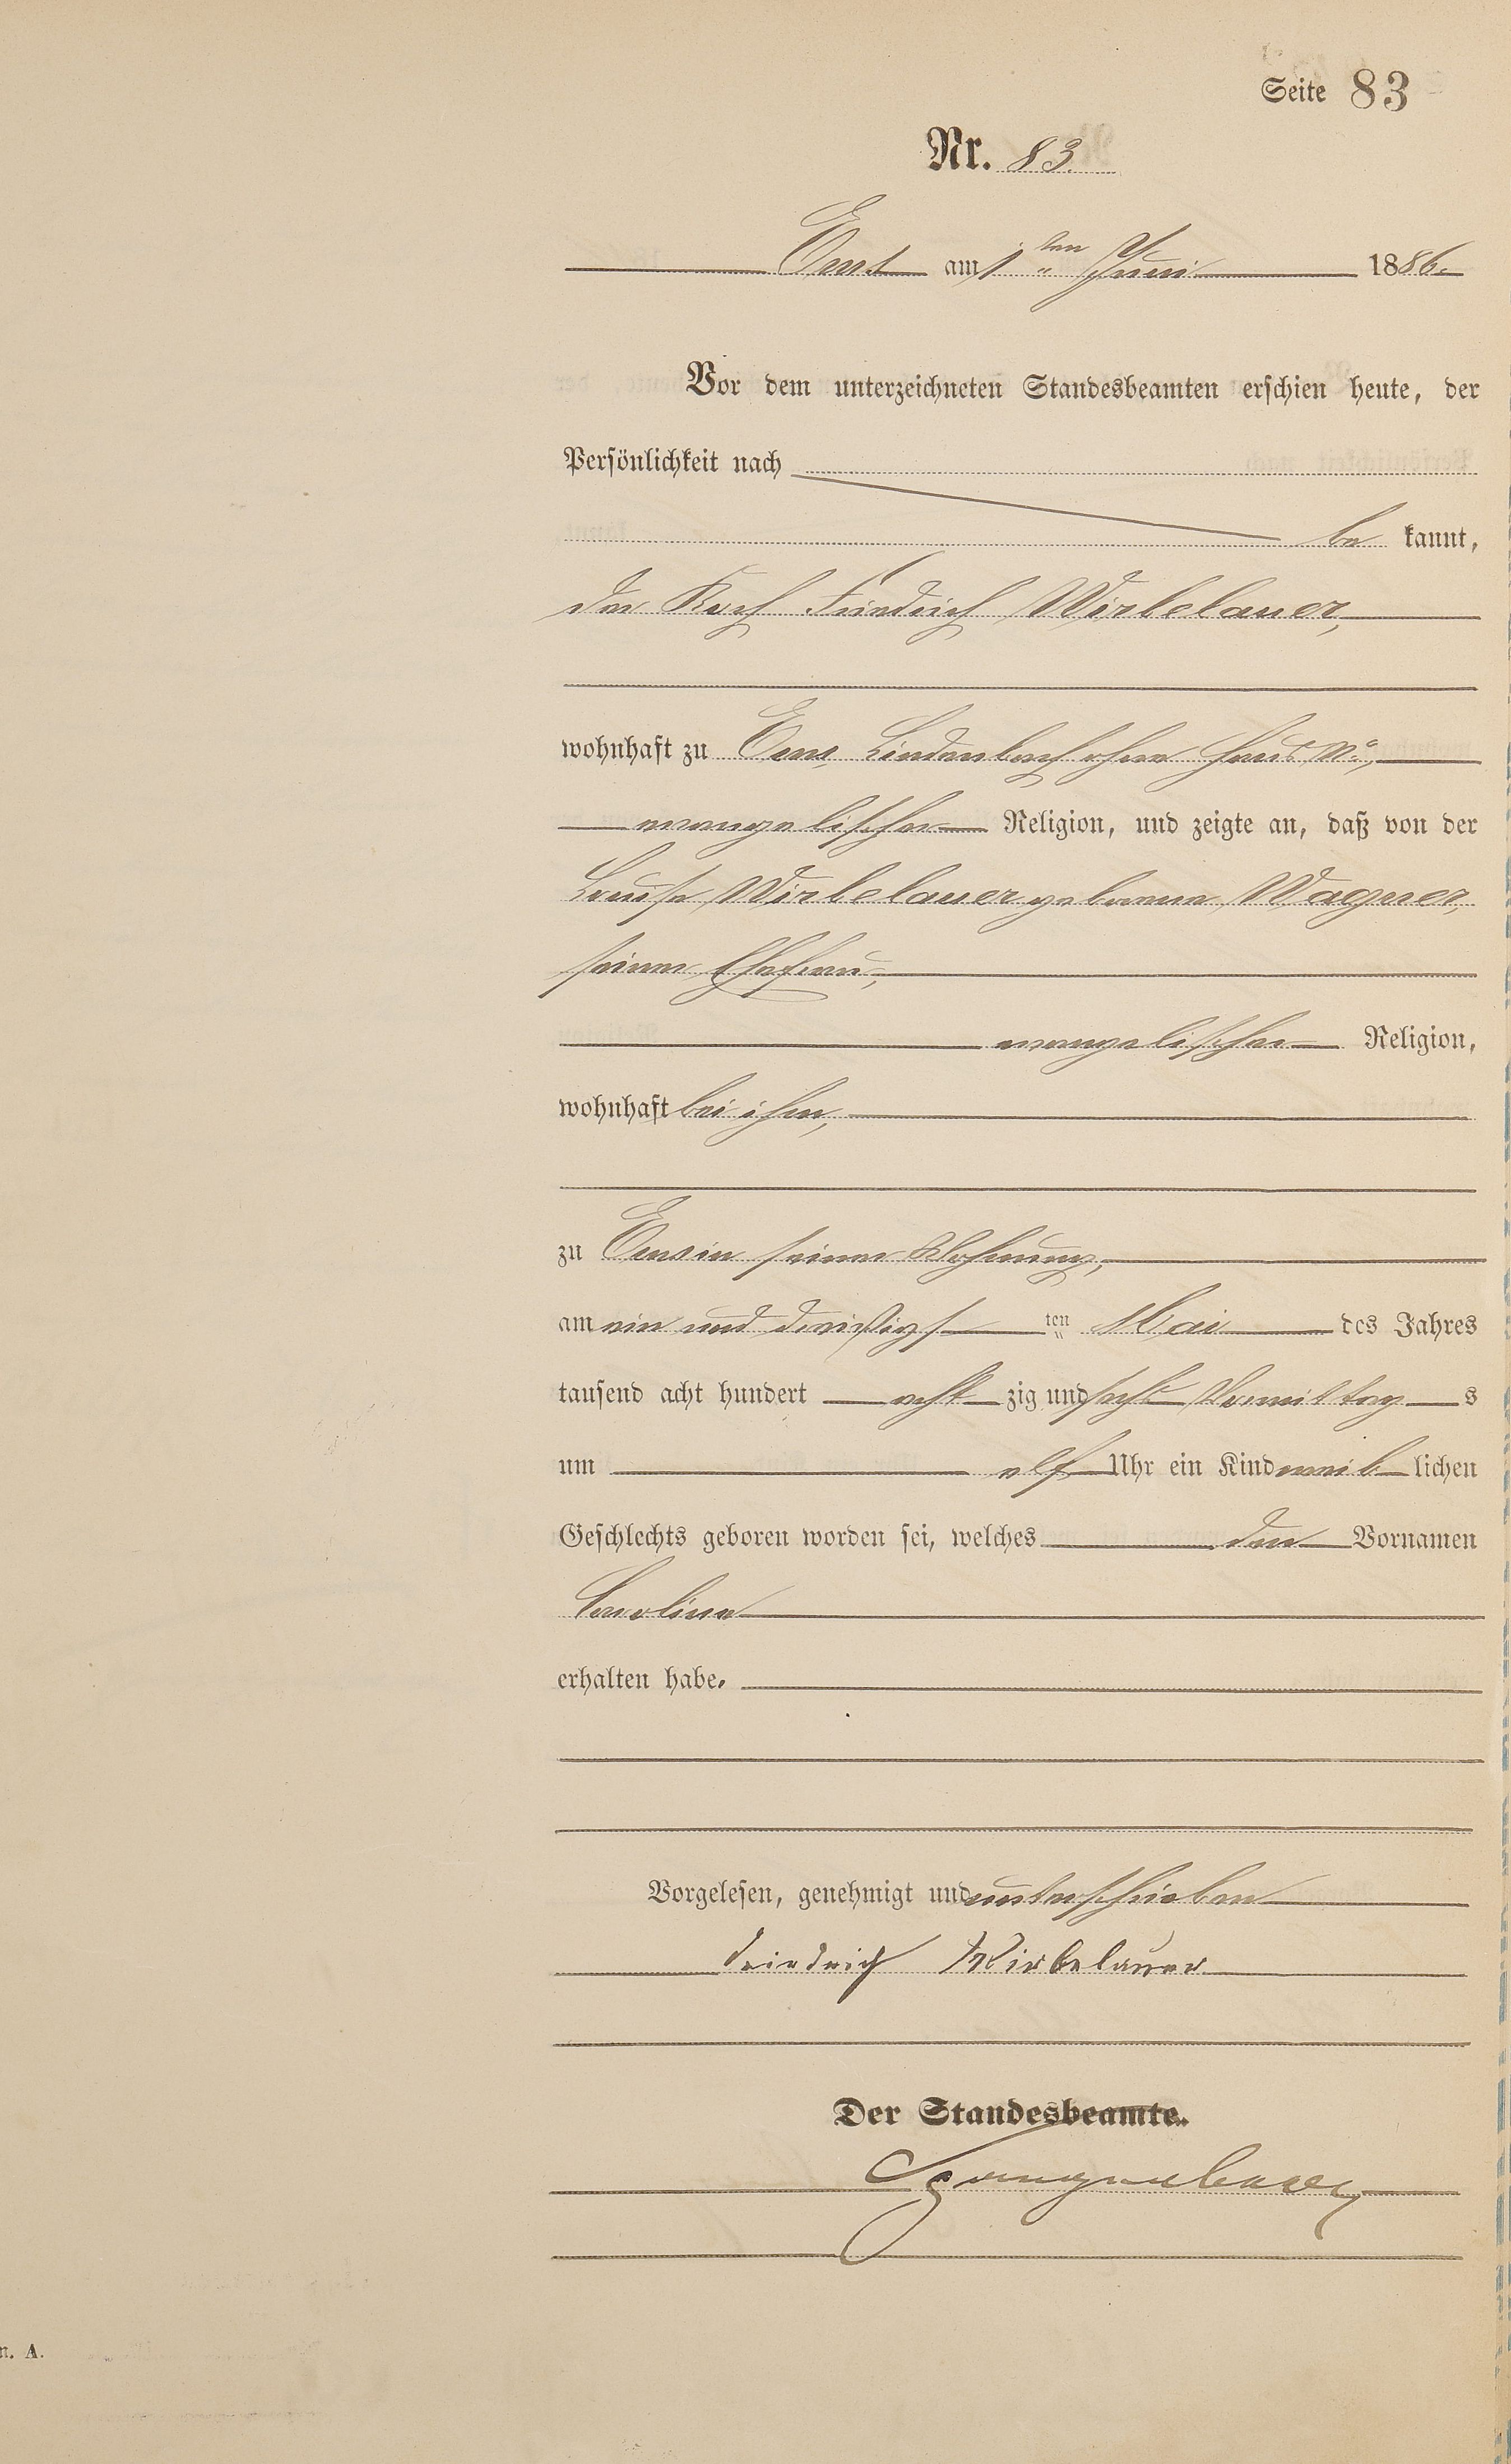 Seite 83
Nr. 83.
Ems am 1ten Juni 1886.
Vor dem unterzeichneten Standesbeamten erschien heute, der
Persönlichkeit nach
be kannt,
der Koch Friedrich Wirbelauer,
wohnhaft zu Ems, Lindenbach ohne Haus No,
evangelischer Religion, und zeigte an, daß von der
Louise Wirbelauer geborene Wagner,
seiner Ehefrau,
evangelischer Religion,
wohnhaft bei ihm,
zu Ems in seiner Wohnung,
am ein und dreißigsten Mai des Jahres
tausend acht hundert acht zig und sechs Vormittags
um elf Uhr ein Kind weiblichen
Geschlechts geboren worden sei, welches den Vornamen
Caroline
erhalten habe.
Vorgelesen, genehmigt und unterschrieben
Friedrich Wirbelauer
Der Standesbeamte.
n. A.